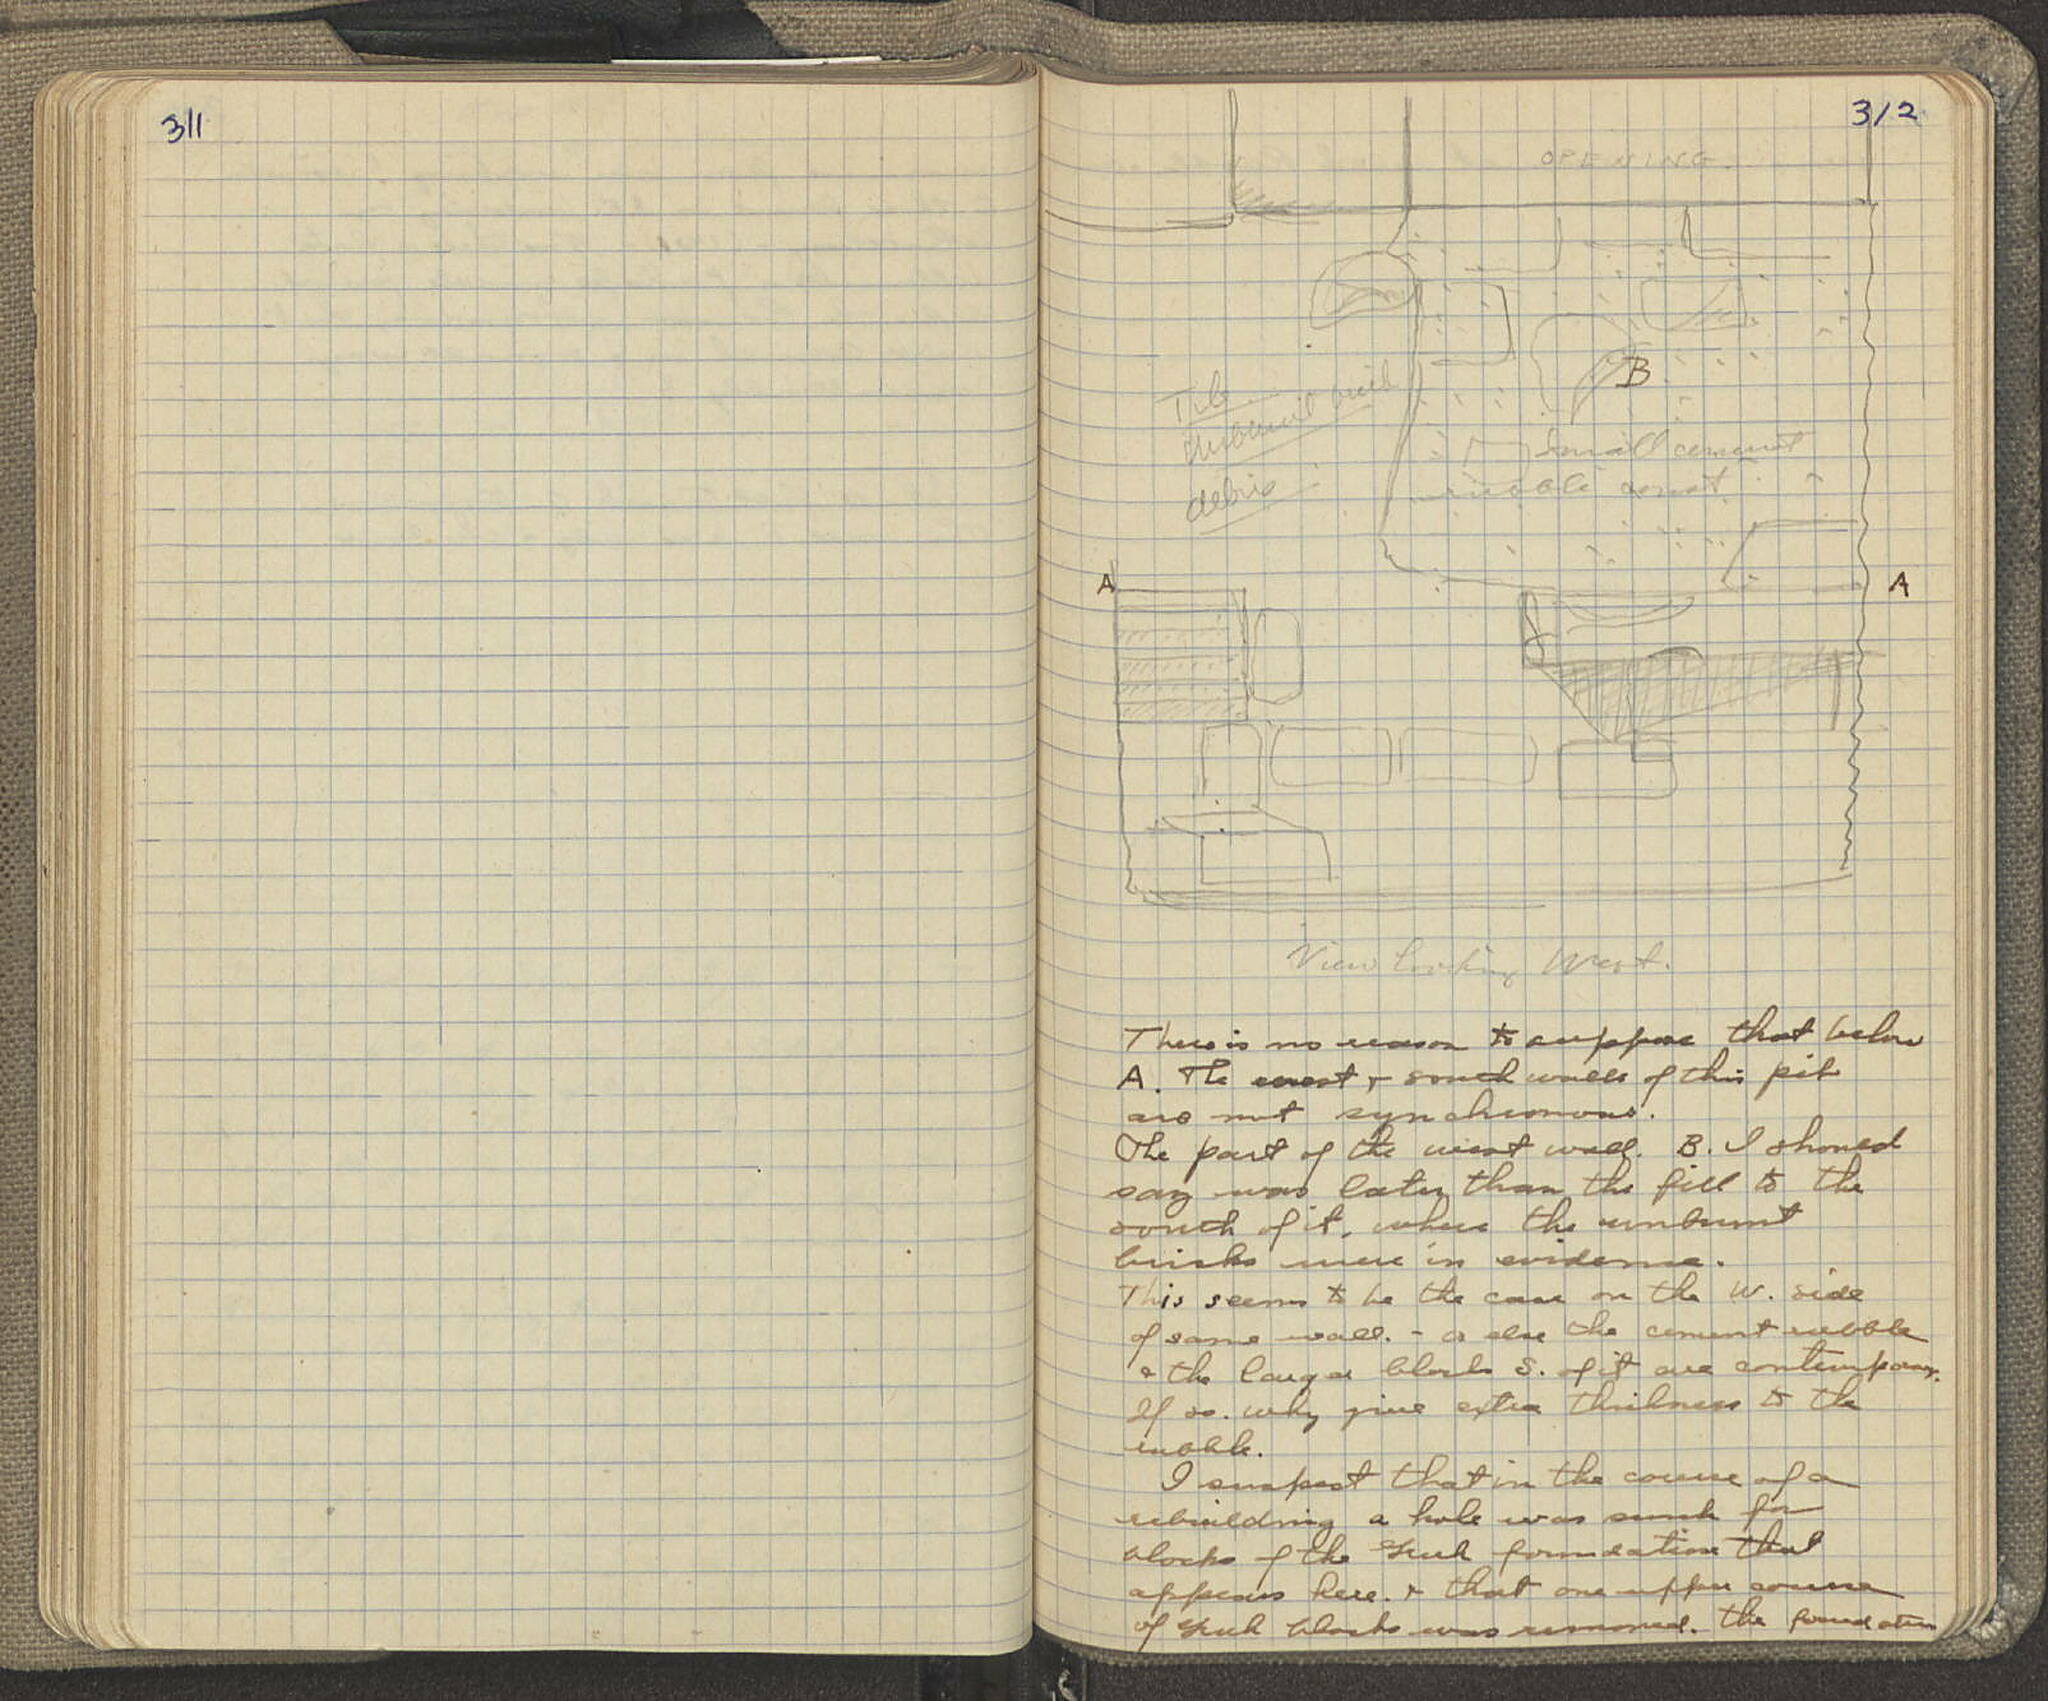 311
312
OPENING
B
Tile
unburnt brick
debris
Small cement
rubble const.
A
A
View looking West.
There is no reason to suppose that below
A. The west & south walls of this pit
are not synchronous.
The part of the west wall. B. I should
say was later than the fill to the
south of it, where the unburnt
bricks were in evidence.
This seems to be the case on the W. side
of same wall. - or else the cement rubble
& the larger blocks S. of it are contempory.
If so. why give extra thickness to the
rubble.
I suspect that in the course of a
rebuilding a hole was sunk for
blocks of the Greek foundation that
appears here. & that one upper course
of Greek blocks was removed. the foundation